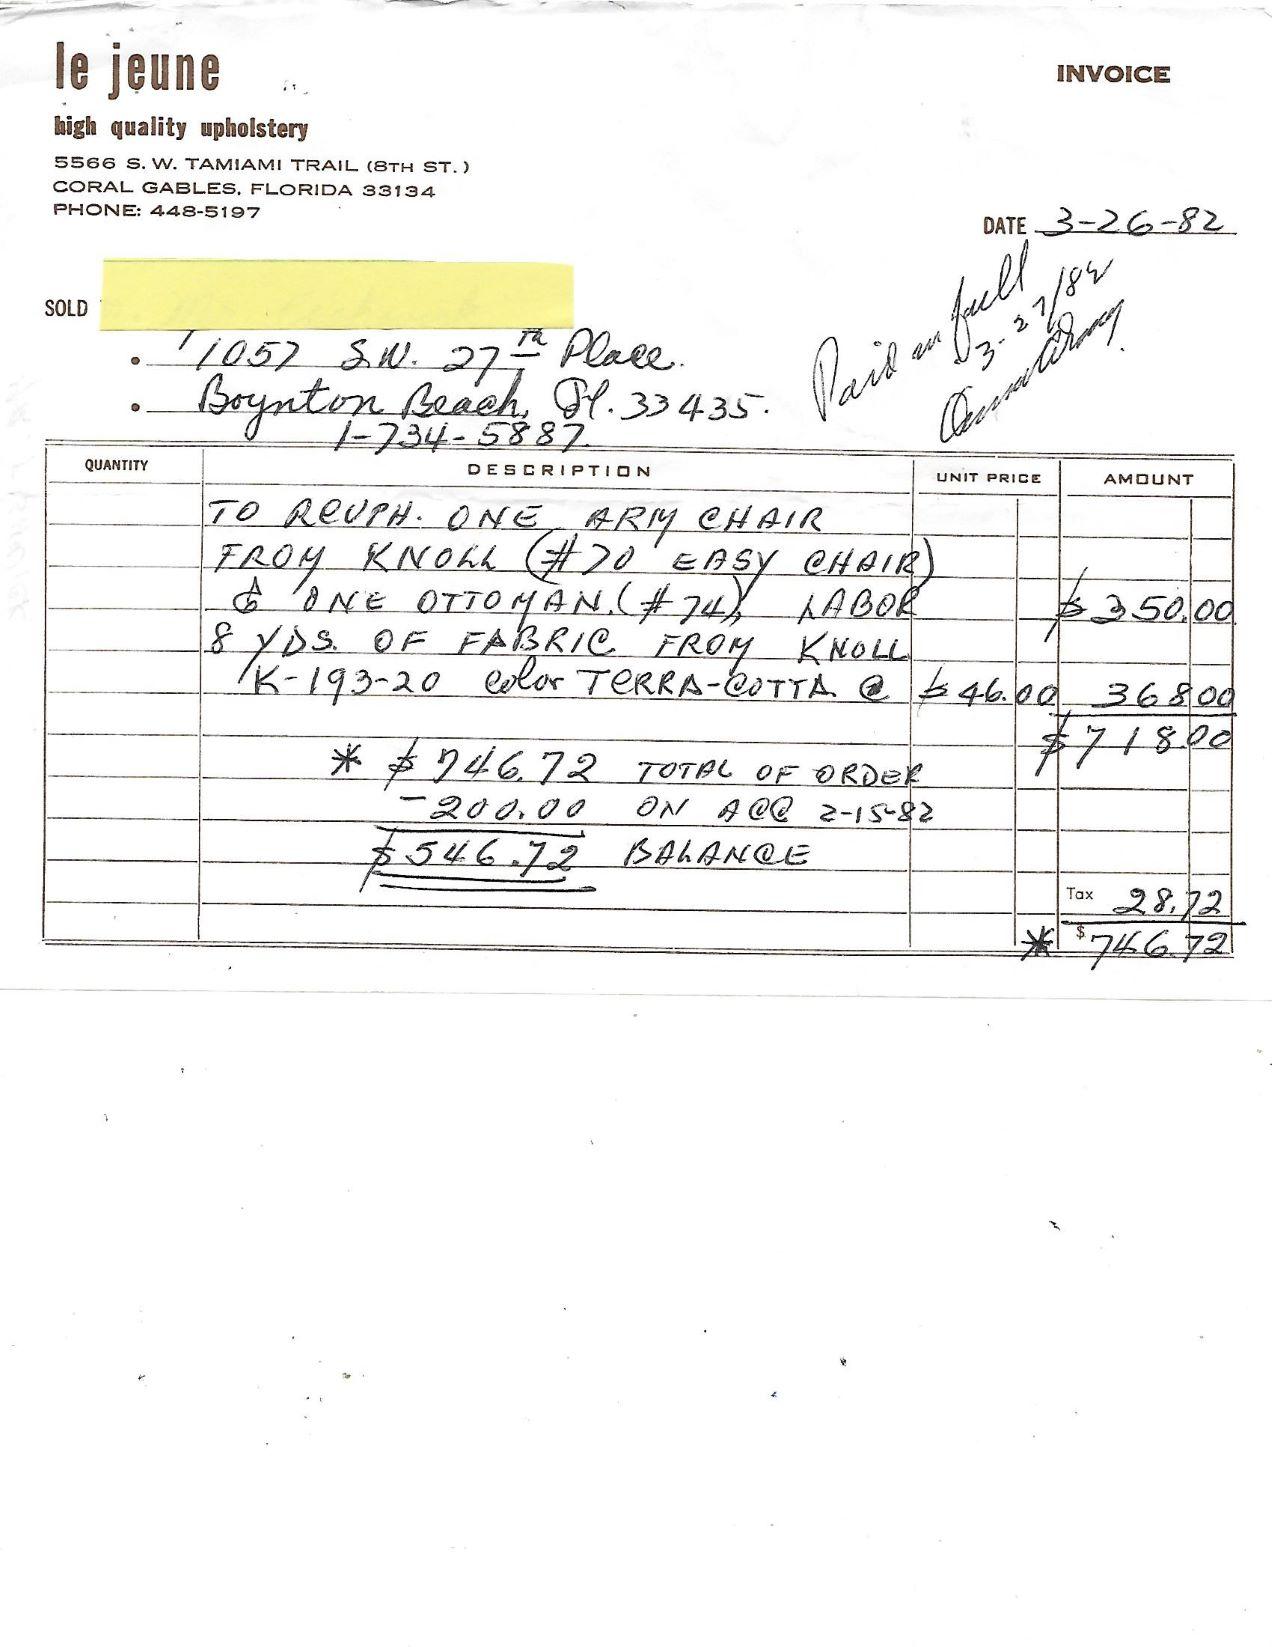 le jeune
INVOICE
high quality upholstery
5566 S. W. TAMIAMI TRAIL (8TH ST.)
CORAL GABLES, FLORIDA 33134
PHONE: 448-5197
DATE 3-26-82
Paid in full
3-27/82
SOLD
1057 S.W. 27th Place.
Boynton Beach, Fl. 33435.
1-734-5887
QUANTITY DESCRIPTION UNIT PRICE AMOUNT
TO REUPH. ONE ARM CHAIR
FROM KNOLL (#70 EASY CHAIR)
& ONE OTTOMAN. (#74), LABOR $350.00
8 YDS. OF FABRIC FROM KNOLL
K-193-20 color TERRA-COTTA @ $46.00 368.00
$718.00
* $746.72 TOTAL OF ORDER
-200.00 ON ACC 2-15-82
$546.72 BALANCE
Tax 28.72
* $746.72